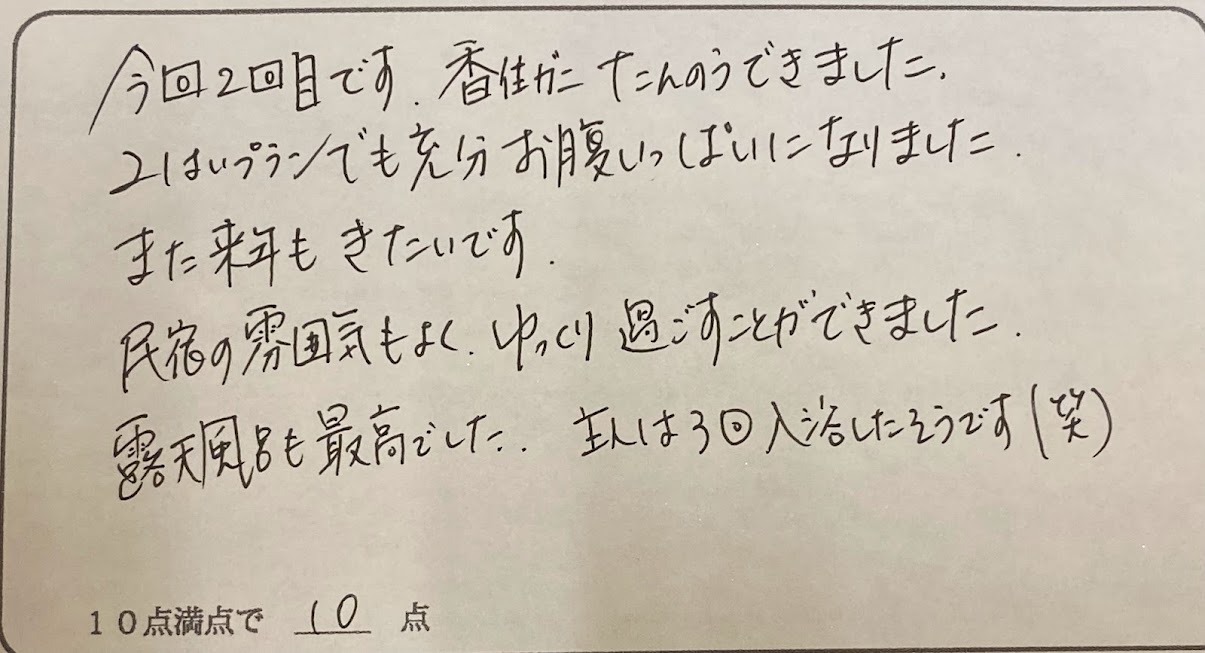 今回2回目です. 香住ガニ たんのうできました.
2はいプランでも充分お腹いっぱいになりました.
また来年もきたいです.
民宿の雰囲気もよく. ゆっくり過ごすことができました.
露天風呂も最高でした.. 主人は3回入浴したそうです(笑)
10点満点で 10 点